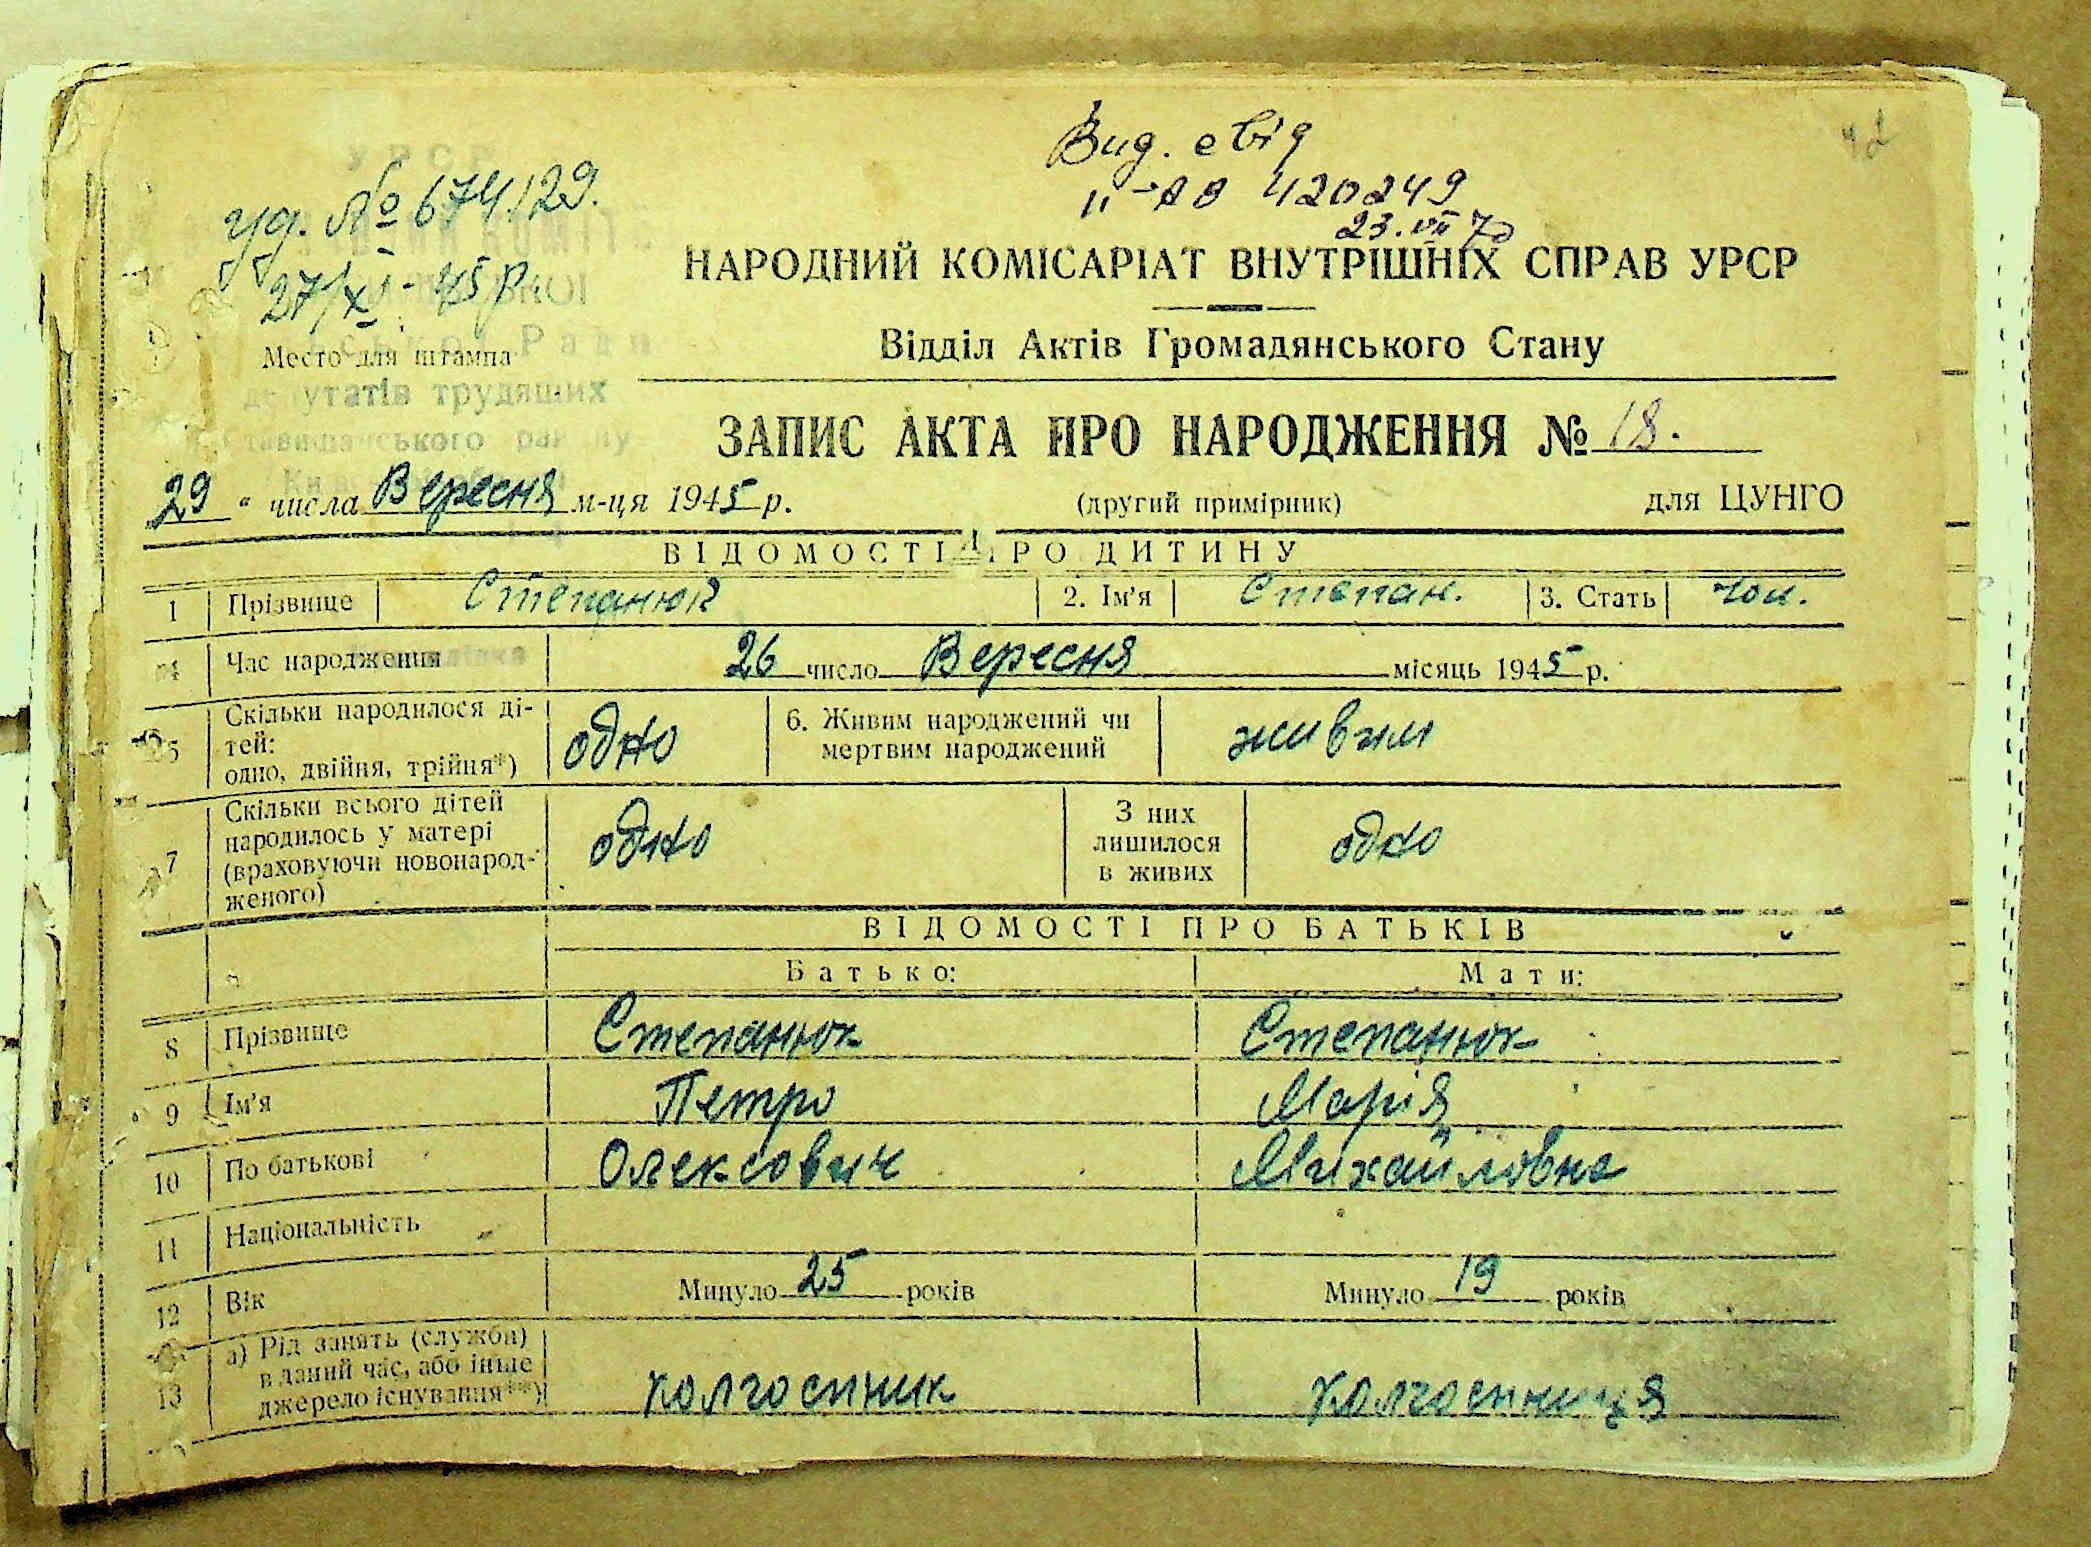 42
Вид. свід
ІІ-АВ 420249
23.VII 70
УРСР
уд. № 674129.
27/XI - 45 р.
НАРОДНИЙ КОМІСАРІАТ ВНУТРІШНІХ СПРАВ УРСР
Відділ Актів Громадянського Стану
Ради
Место для штампа
депутатів трудящих
Ставищанського району
ЗАПИС АКТА ПРО НАРОДЖЕННЯ № 18.
29 " числа Вересня м-ця 1945 р. (другий примірник) для ЦУНГО
ВІДОМОСТІ ПРО ДИТИНУ
1 Прізвище Степанюк 2. Ім'я Степан. 3. Стать чол.
4 Час народження 26 число Вересня місяць 1945 р.
5 Скільки народилося ді-
тей:
одно, двійня, трійня*) одно 6. Живим народжений чи
мертвим народжений живим
7 Скільки всього дітей
народилось у матері
(враховуючи новонарод-
женого) одно З них
лишилося
в живих одно
ВІДОМОСТІ ПРО БАТЬКІВ
Батько: Мати:
8 Прізвище Степанюк Степанюк
9 Ім'я Петро Марія
10 По батькові Олексович Михайловна
11 Національність
12 Вік Минуло 25 років Минуло 19 років
13 а) Рід занять (служби)
в даний час, або інше
джерело існування**) колгоспник колгоспниця